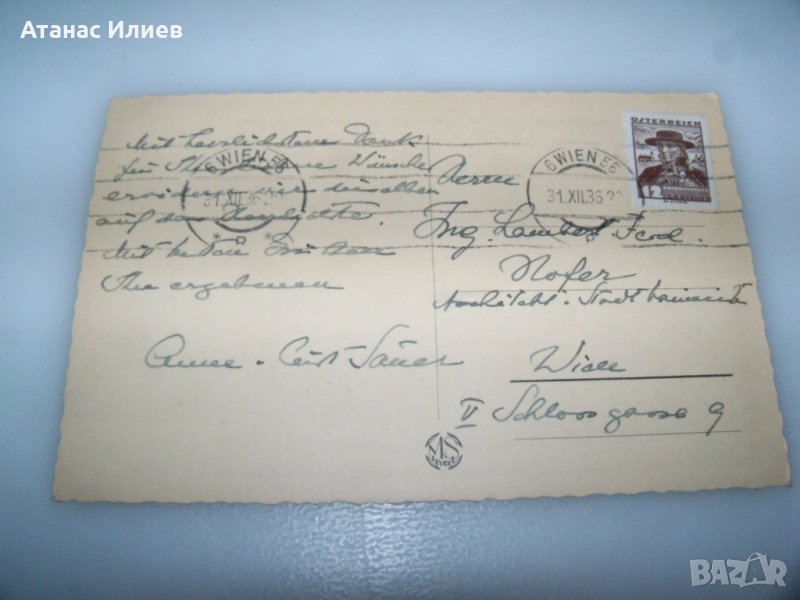 Атанас Илиев
ÖSTERREICH
12
6 WIEN 56
31.XII.36
6 WIEN 56
31.XII.36 22
Mit herzlichstem Dank
für Ihre Wünsche
erwidern wir dieselben
auf das Herzlichste.
Mit besten Grüssen
Ihre ergebenen
Anne - Curt Sauer
Herrn
Ing. Lambert Ferd.
Hofer
Architekt - Stadtbaumeister
Wien
V Schlossgasse 9
MS
WIEN
BAZAR